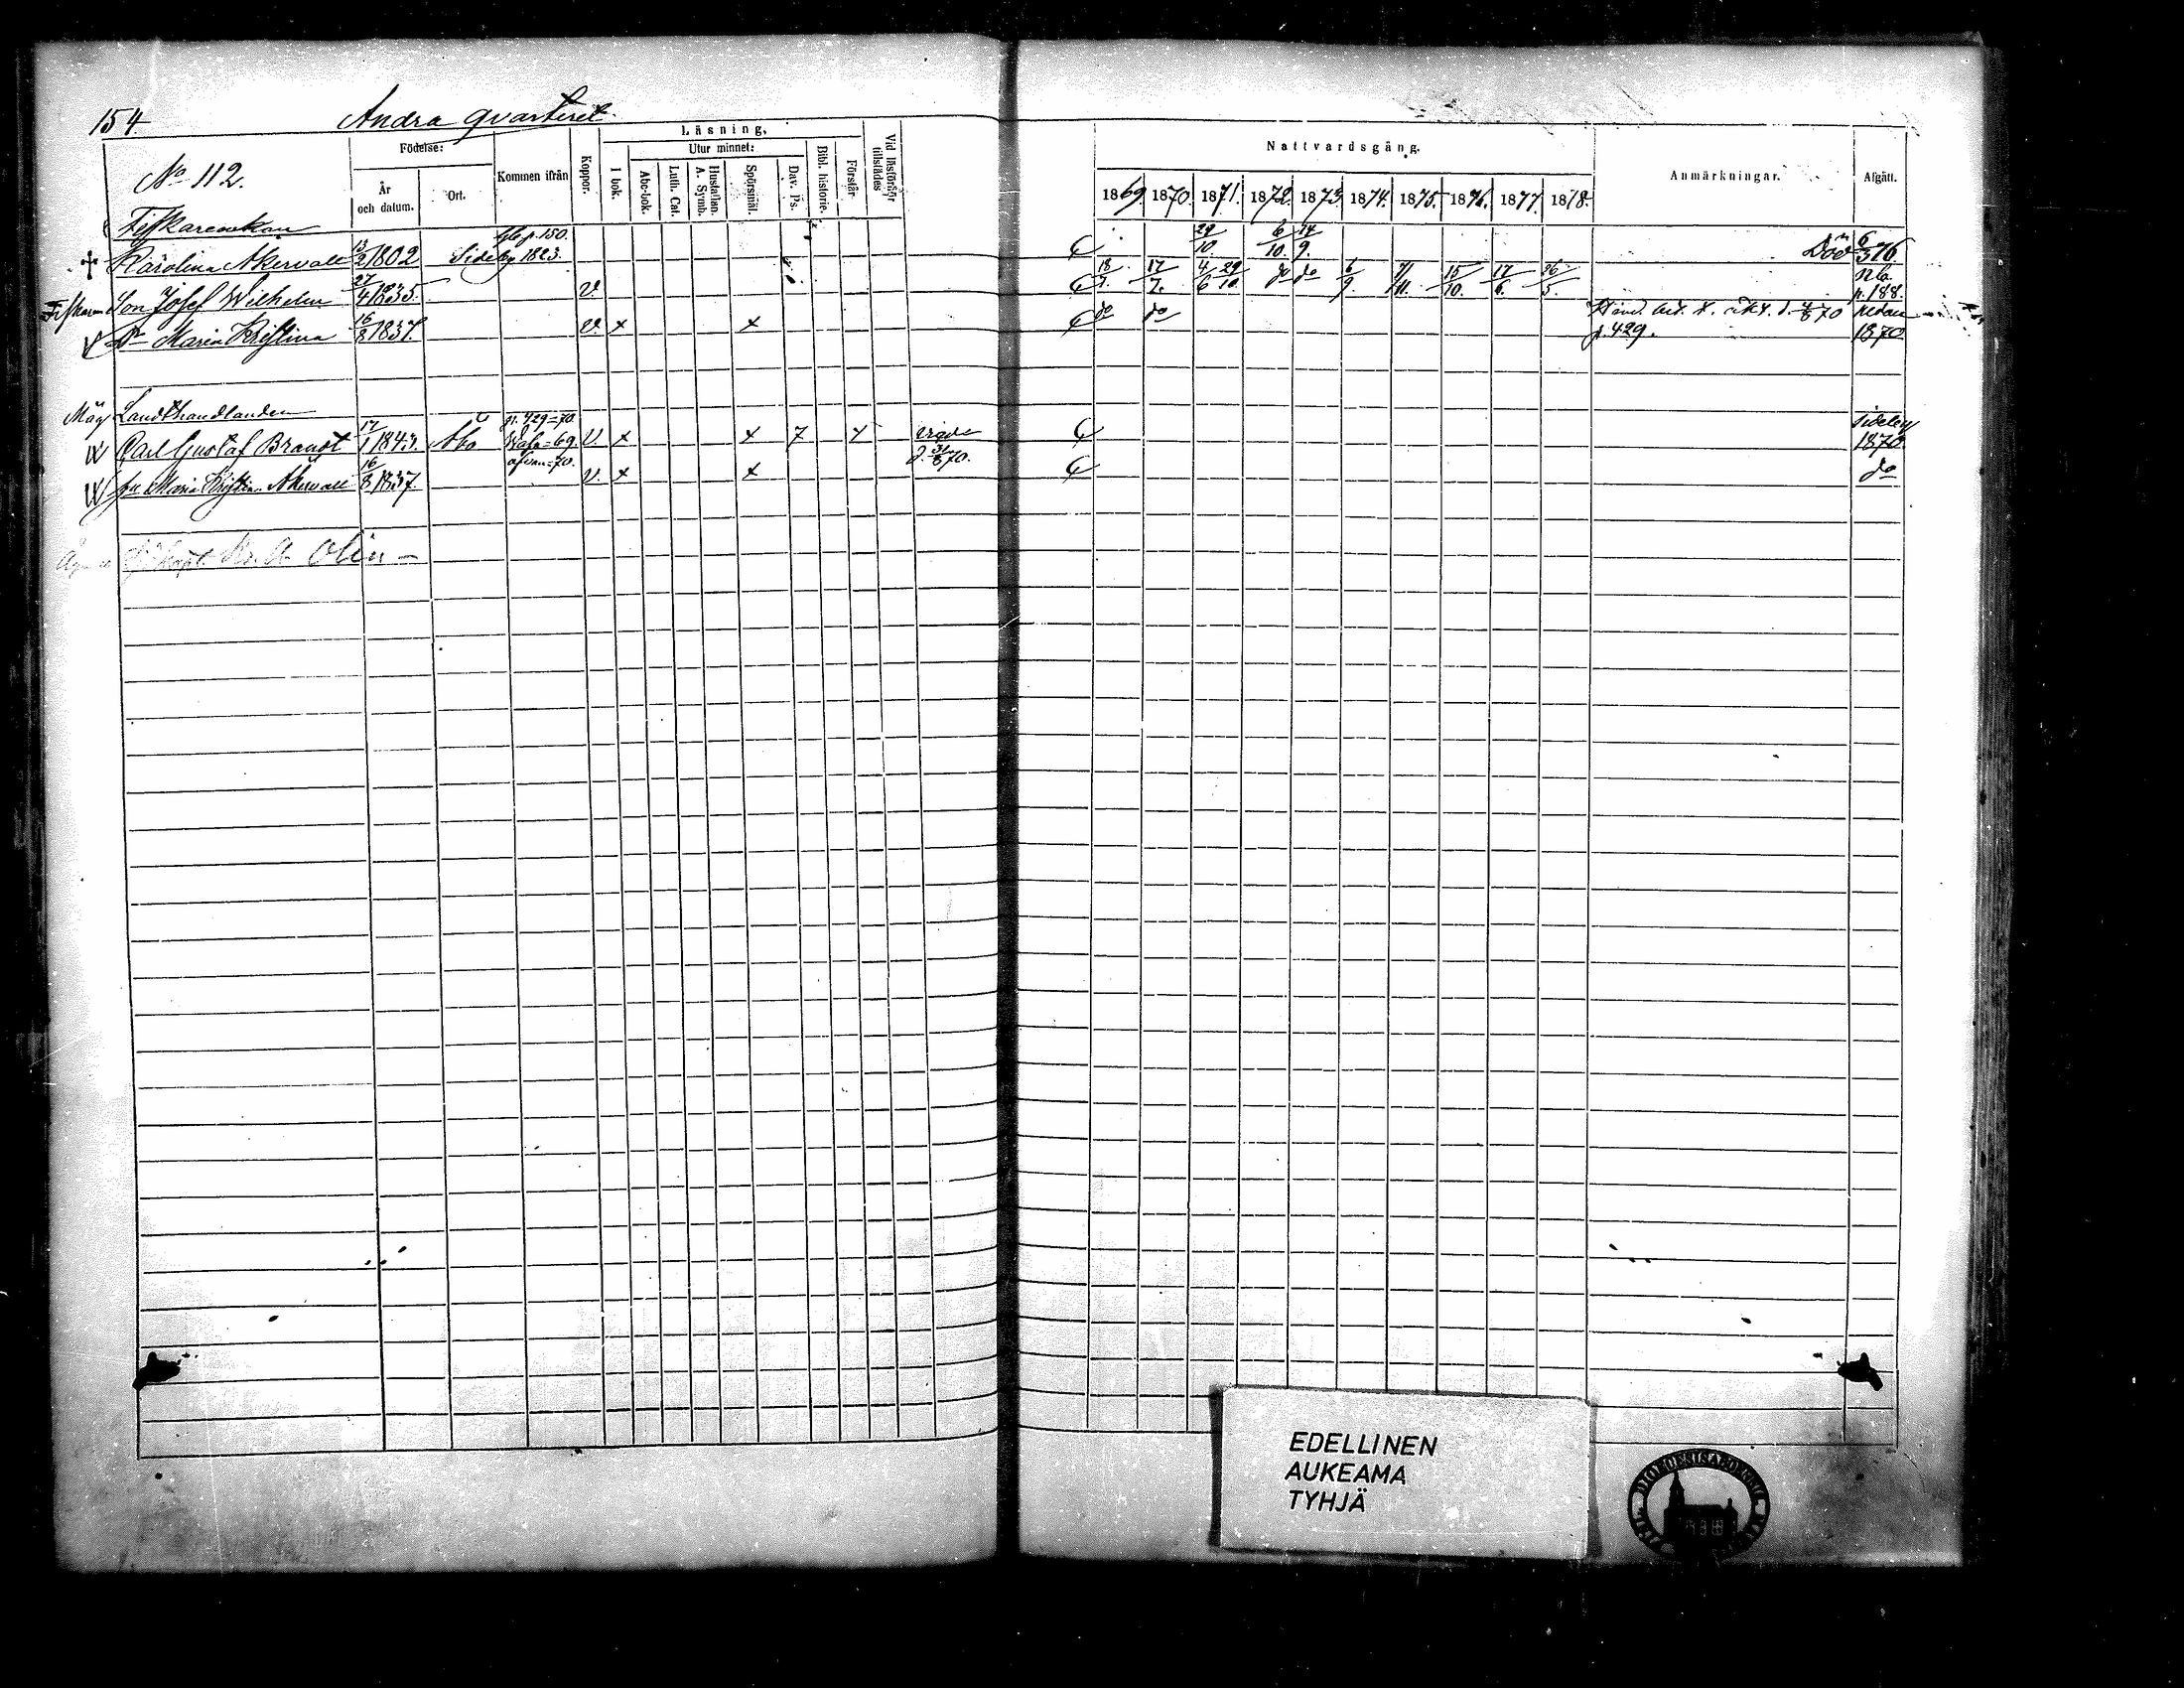 154
Andra qvarteret.
Nattvardsgång.
Anmärkningar.
Afgått.
Födelse:
År och datum.
Ort.
Kommen ifrån
Koppor.
Läsning.
I bok.
Utur minnet:
Abc-bok.
Luth. Cat.
Hustaflan. A. Symb.
Spörsmål.
Dav. Ps.
Bibl. historie.
Förstår
Vid läsförhör tillstädes
1869 1870. 1871. 1872. 1873 1874. 1875. 1876. 1877. 1878.
No 112.
Fiskareenkan
p. 150.
29/10. 6/10. 14/9.
Karolina Åkervall 13/2 1802 Sideby 1823. Död 6/3 76
Son Josef Wilhelm 27/4 1835. v. 18/7. 17/7. 4/6 29/10 do do 6/9. 7/11. 15/10. 17/6. 26/5. p. 188.
Dr Maria Kristina 16/8 1837. v. x x do do
p. 429. nedan 1870.
Måg Landthandlanden
p. 429=70.
Carl Gustaf Brandt 17/1 1843. Åbo Wasa=69. v. x x 7 x vigde d. 31/8 70. Sideby 1870.
ofvan=70.
hu Maria Kristina Åkervall 16/8 1837. v. x x do
Olin –
EDELLINEN
AUKEAMA
TYHJÄ